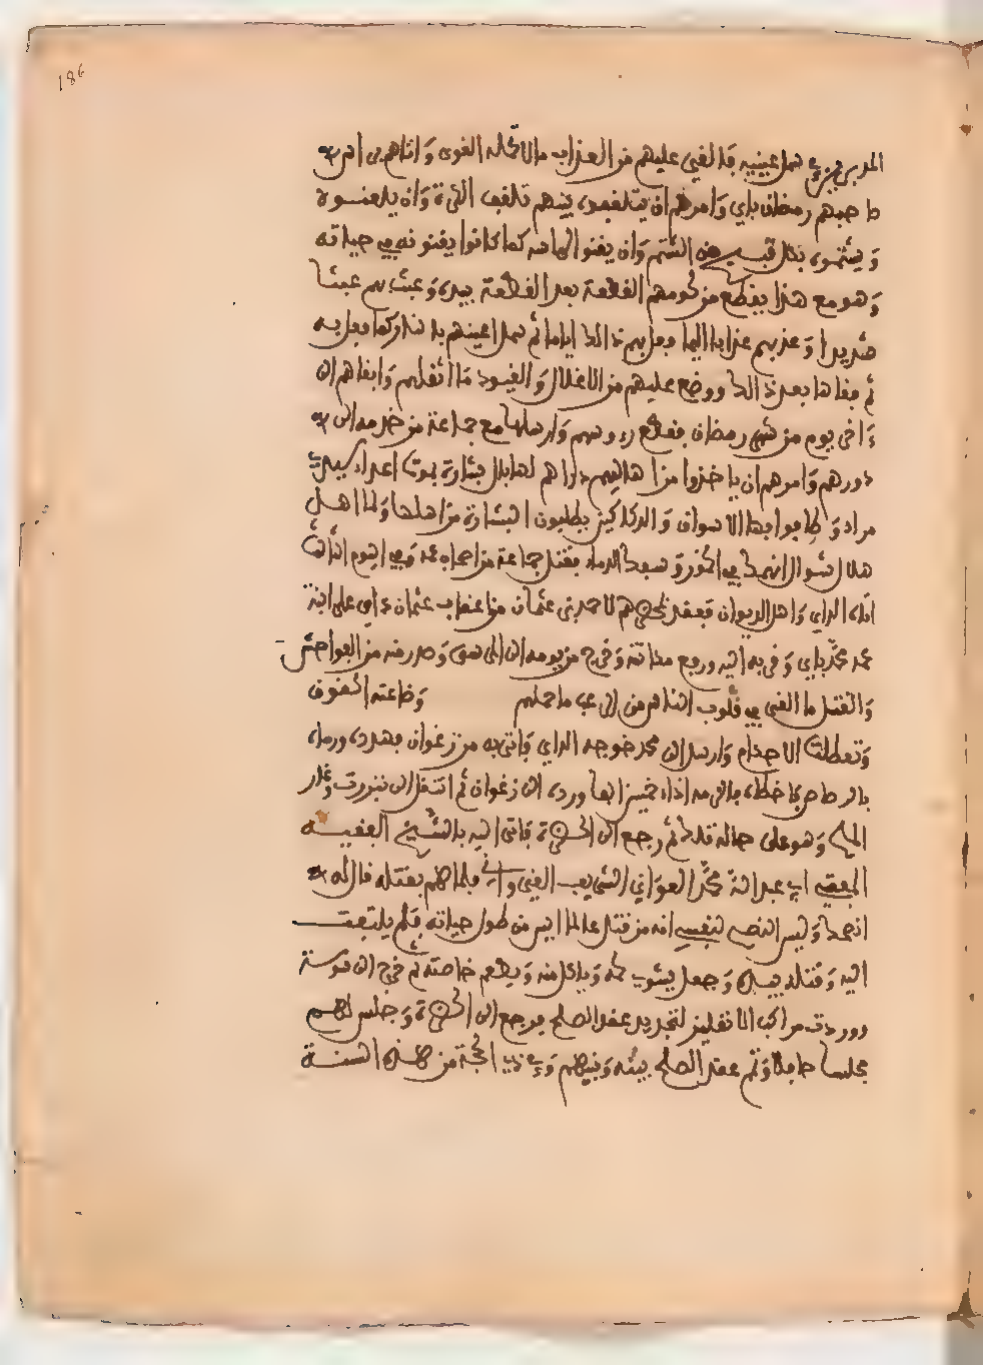 186
المدبرين في سمل عينيه فالفي عليهم من العذاب ما لا تحمله القوى واتاهم من امر
صاحبهم رمضان باي وامرهم ان يتلقفوه بينهم تلقف الكرة وان يلعنوه
ويشتموه بكل قبيح من الشتم وان يغنوا الهامه كما كانوا يغنونه في حياته
وهو مع هذا يقطع من لحومهم القطعة بعد القطعة بيده وعبث بهم عبثا
شديدا وعذبهم عذابا اليما وفعل بهم ذلك اياما ثم سمل اعينهم بالنار كما فعل به
ثم فقاها بعد ذلك ووضع عليهم من الاغلال والقيود ما اثقلهم وابقاهم الى
ءاخر يوم من شهر رمضان فقطع رءوسهم وارسلها مع جماعة من خدمه الى
دورهم وامرهم ان ياخذوا من اهاليهم دراهم لهابل بشارة بموت اعداء سيدي
مراد وطافوا بها الاسواق والدكاكين يطلبون البشارة من اهلها ولما اهل
هلال شوال انهمك في الخمر وسفك الدماء بقتل جماعة من اصحاب عمه وفي اليوم الثالث
اتاه الداي واهل الديوان فعقد بحضرتهم لاحمد بن عثمان من اعقاب عثمان داي على ابنة
عمه محمد باي وفر به اليه ورجع مكانته وخرج من يومه الى المرسى وصدر منه من الفواحش
والقتل ما القى في قلوب الناس من الرعب ما حملهم وضاعت الحقوق
وتعطلت الاحكام وارسل الى محمد خوجه الداي فاتي به من زغوان فهدده ورماه
بالرصاص فاخطاه فالزمه اداء خمسين الفا ورده الى زغوان ثم انتقل الى بنزرت وغار
الملح وهو على حاله تلك ثم رجع الى الحضرة فاتى اليه بالشيخ الفقيه
المفتي ابي عبد الله محمد العواني الشريف القيرواني فلما هم بقتله قال له
انهمك وليس النصح لنفسه انه من قتل عالما ايس من طول حياته فلم يلتفت
اليه وقتله بيده وجعل يشوي لحمه وياكل منه ويطعم خاصته ثم خرج الى سوسة
ووردت مراكب الانقليز لتجديد عقد الصلح فرجع الى الحضرة وجلس لهم
مجلسا حافلا وتم عقد الصلح بينه وبينهم وفي ذي الحجة من هذه السنة